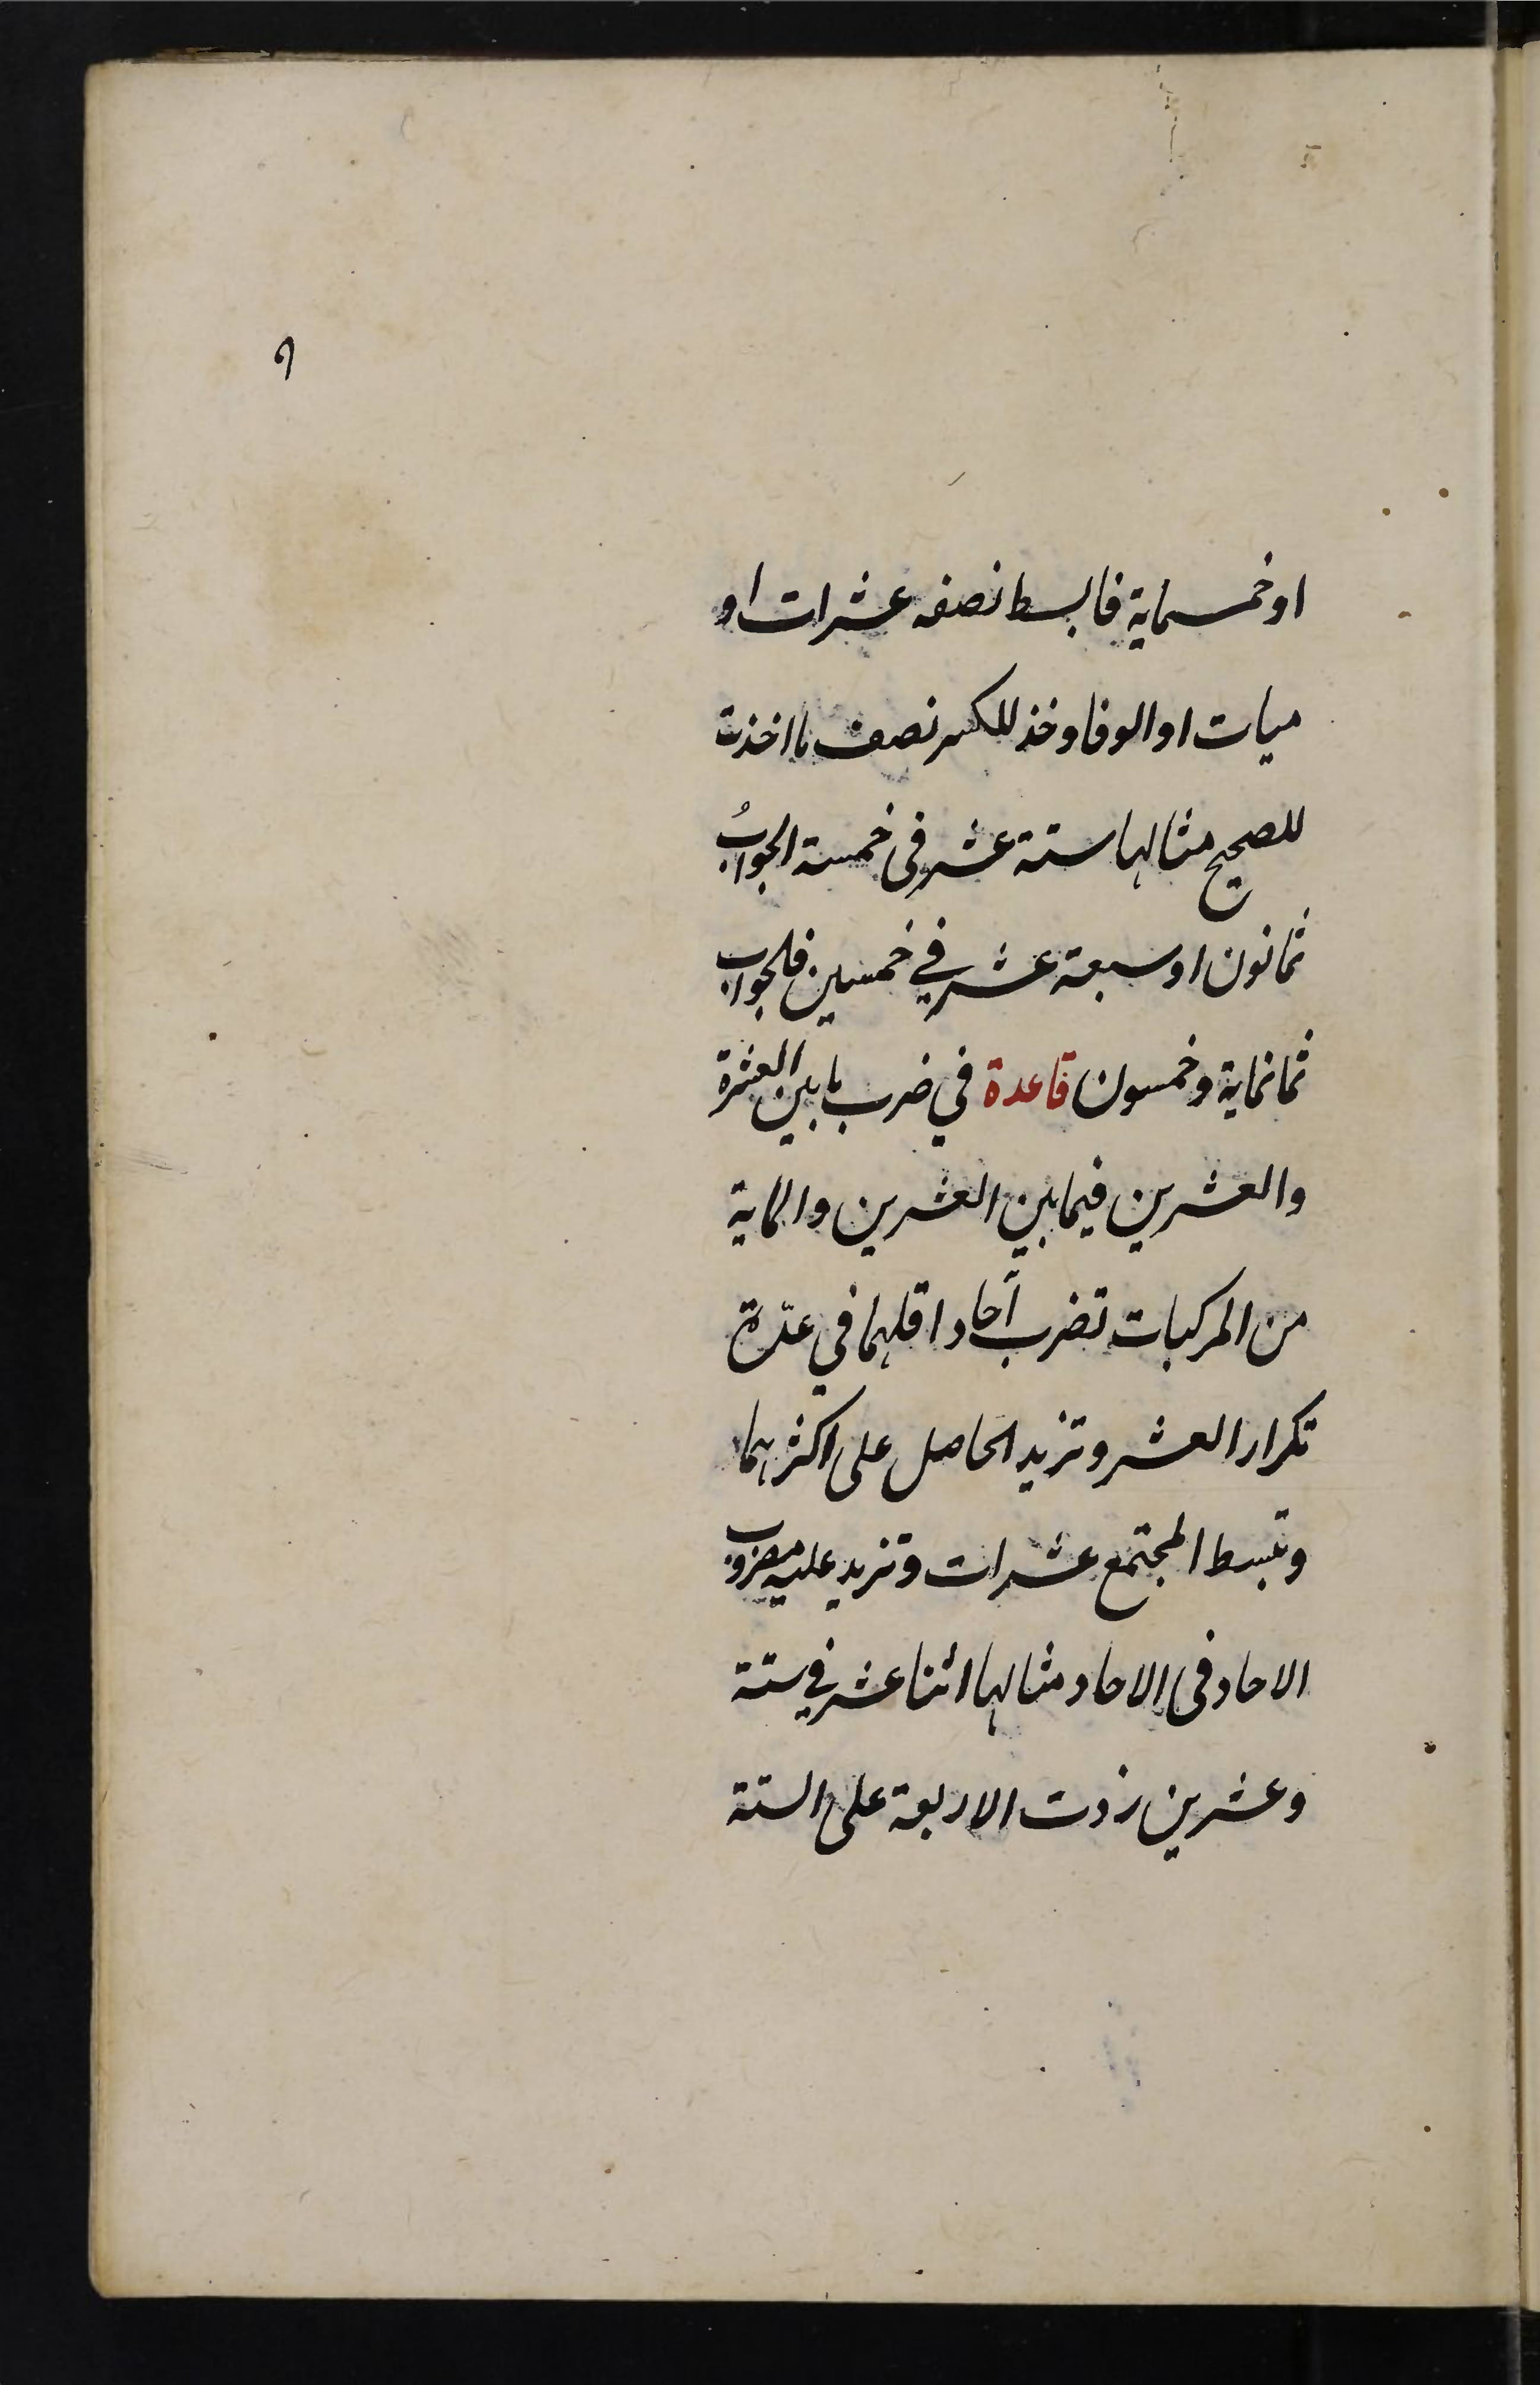 ٩
او خمسماية فابسط نصفه عشرات او
ميات او الوفا وخذ للكسر نصف ما اخذت
للصحيح مثالها ستة عشر فى خمسة الجوابُ
ثمانون او سبعة عشر في خمسين فلجواب
ثمانماية وخمسون قاعدة في ضرب ما بين العشرة
والعشرين فيما بين العشرين والماية
من المركبات تضرب آحاد اقلهما في عدّة
تكرار العشر وتزيد الحاصل على اكثرهما
وتبسط المجتمع عشرات وتزيد عليه مضروب
الاحاد فى الاحاد مثالها اثنا عشر في ستة
وعشرين زدت الاربعة على الستة